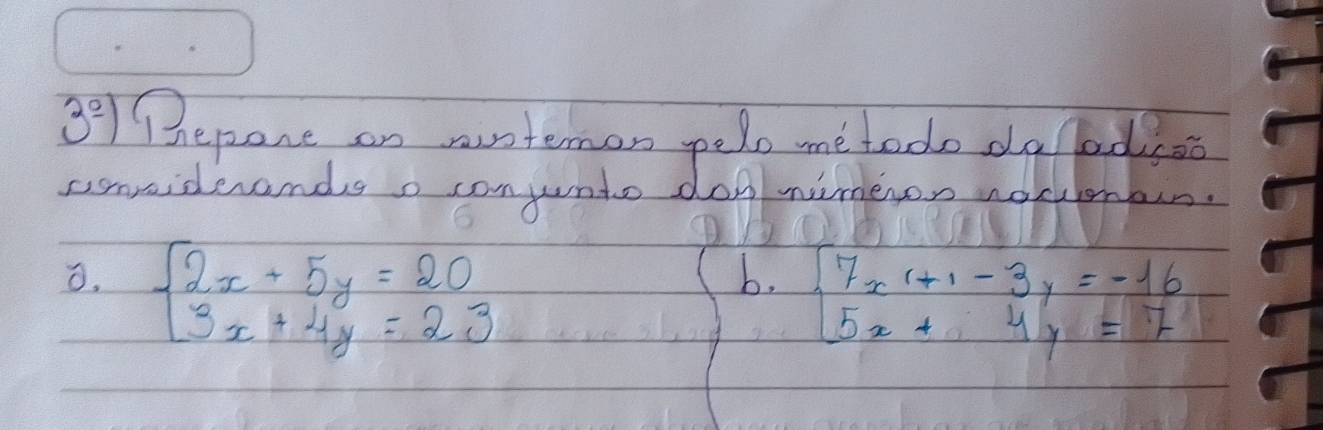 3º) Prepare os sistemas pelo método da adição
considerando o conjunto dos números racionais.
a. { 2x + 5y = 20
3x + 4y = 23
b. { 7x (+) - 3y = -16
5x + 4y = 7